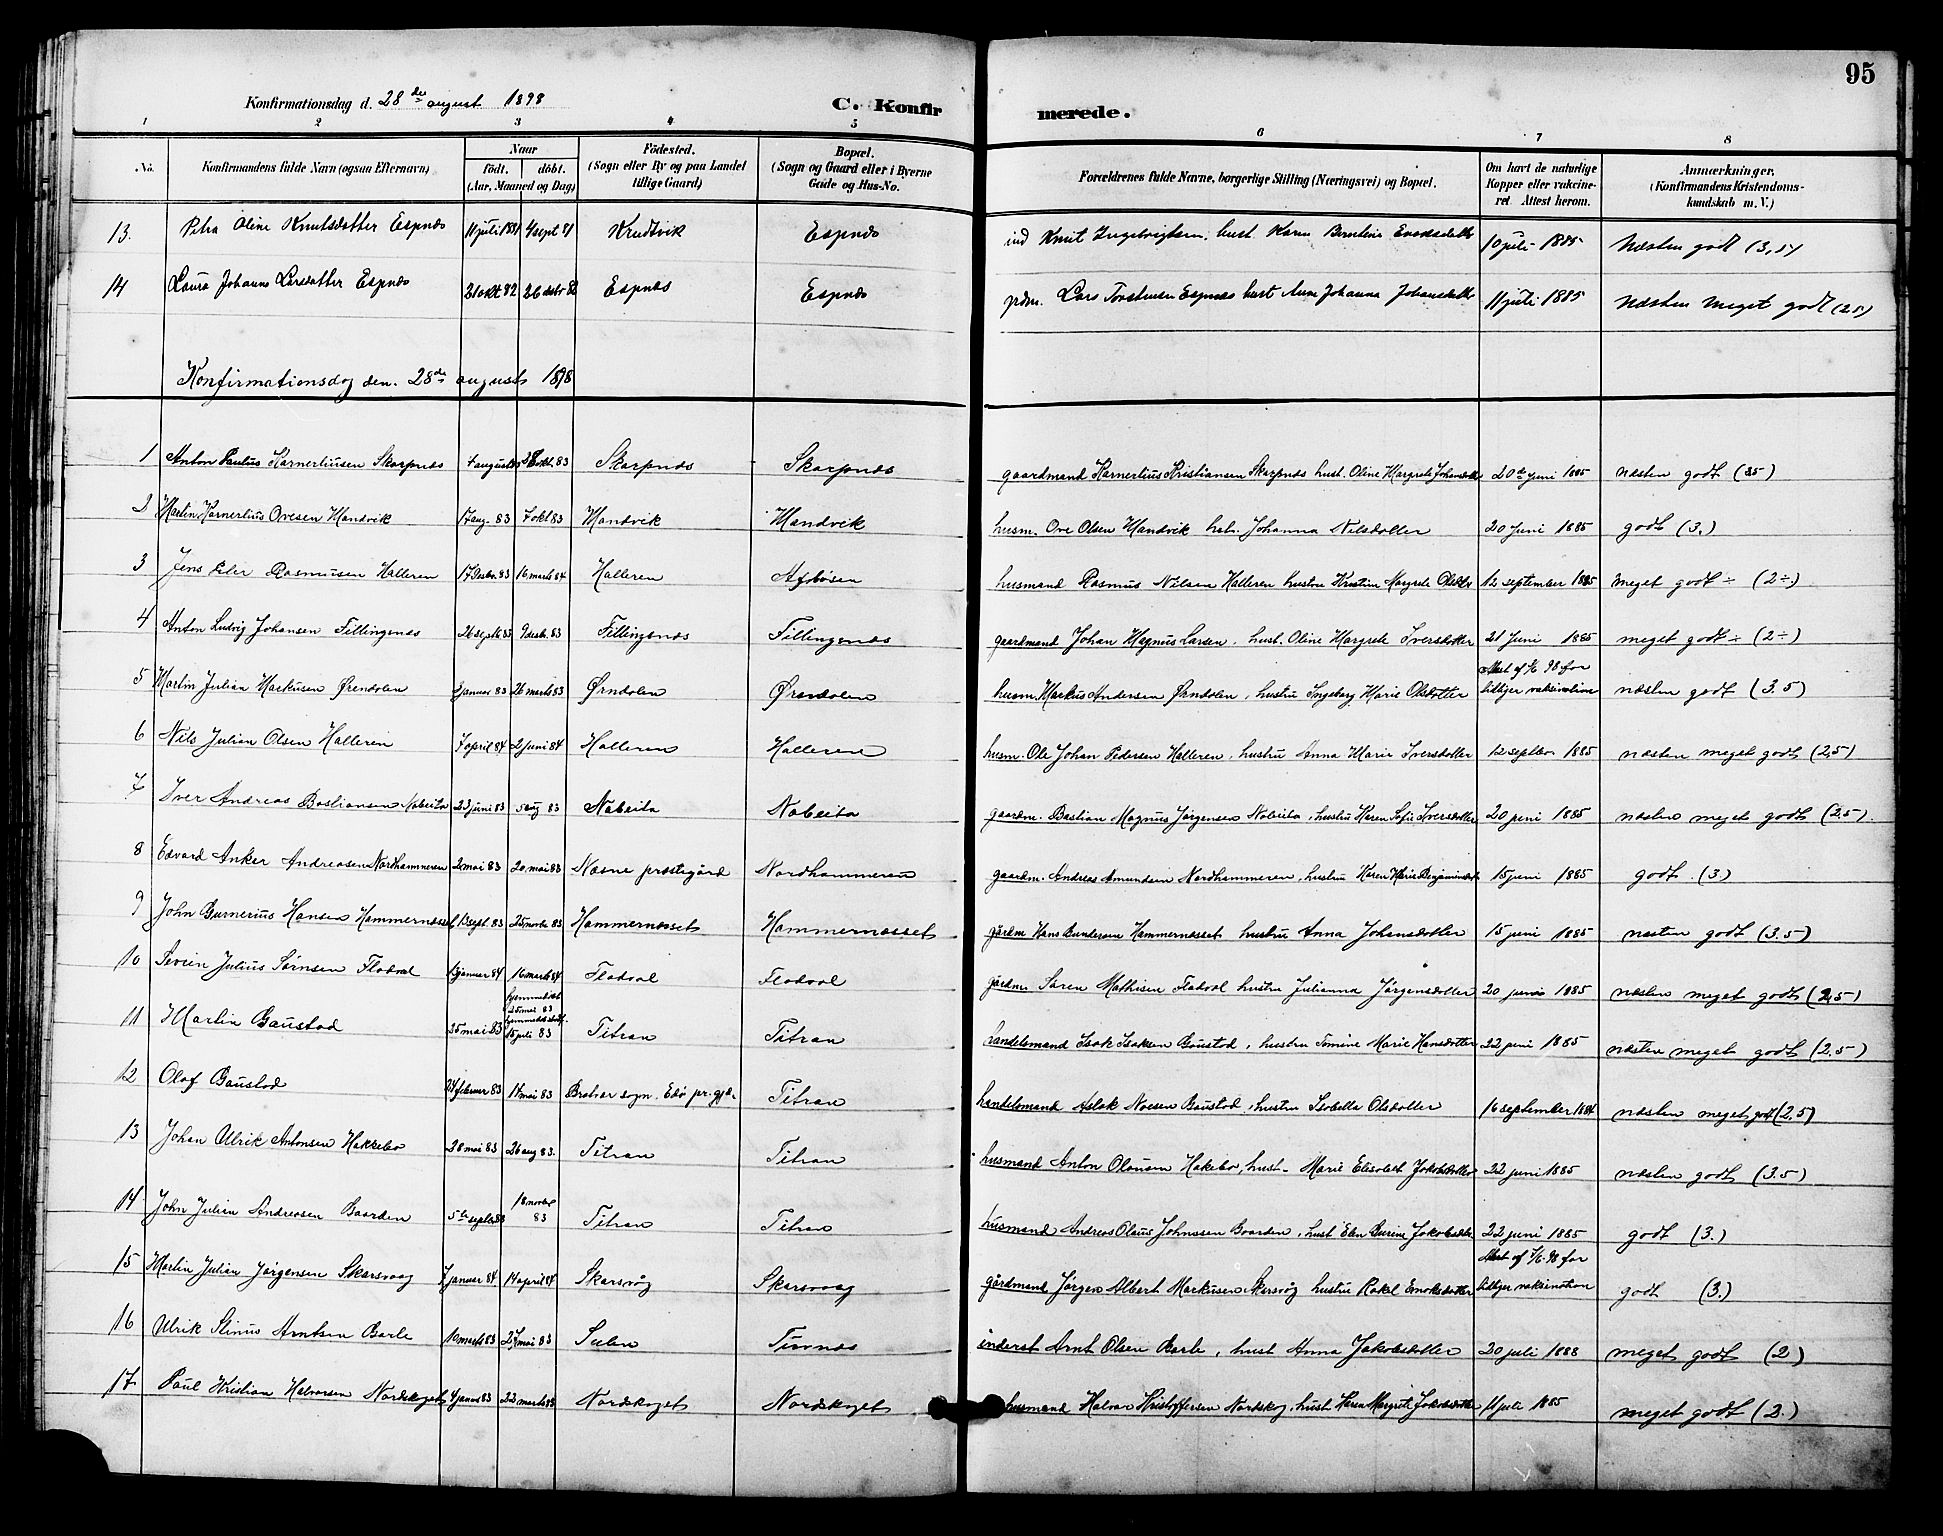 95
Konfirmationsdag d. 28de august 1898 C. Konfirmerede.
1 2 3 4 5 6 7 8
No. Konfirmandens fulde Navn (ogsaa Efternavn) Naar født. døbt. (Aar, Maaned og Dag) Fødested. (Sogn eller By og paa Landet tillige Gaard) Bopæl. (Sogn og Gaard eller i Byerne Gade og Hus-No. Forældrenes fulde Navne, borgerlige Stilling (Næringsvei) og Bopæl. Om havt de naturlige Kopper eller vakcineret. Attest herom. Anmærkninger, (Konfirmandens Kristendomskundskab m. V.)
13. Petra Oline Knutsdatter Espnes 11 juli 1881 4 sept 81 Krudtvik Espnes ind Knut Ingebrigtsen, hust. Karen Berntine Enoksdatter 10 juli 1885 Næsten godt (3,5)
14 Laura Johanna Larsdatter Espnes 21 okt 82 26 desbr 82 Espnes Espnes pdm. Lars Torstensen Espnes hust Anne Johanna Johansdatter 11 juli 1885 Næsten meget godt (2.5)
Konfirmationsdag den. 28de august 1898
1 Anton Paulus Kornerliusen Skarpnes 4 august 83 28 okt. 83 Skarpnes Skarpnes gaardmand Kornerlius Kristiansen Skarpnes hust. Oline Margrete Johansdtr 20de juni 1885 næsten godt (3.5)
2 Martin Kornerlius Ovesen Mandvik 17 aug. 83 7 okt 83 Mandvik Mandvik husm. Ove Olsen Mandvik hst. Johanna Nilsdotter 20 juni 1885 godt (3.)
3 Jens Peter Rasmusen Halleren 17 desbr. 83 16 marts 84 Halleren husmand Rasmus Nilsen Halleren hustru Kristine Margrete Olsdtr 12 september 1885 meget godt ÷ (2÷)
4 Anton Ludvig Johansen Fillingsnes 26 septb 83 9 desb. 83 Fillingsnes Fillingsnes gaardmand Johan Magnus Larsen, hust. Oline Margrete Iversdotter 21 juni 1885 meget godt ÷ (2÷)
5 Martin Julian Markusen Ørendalen 2 januar 83 26 marts 83 Ørndalen Ørendalen husm. Markus Andersen Ørndalen, hustru Ingeborg Marie Olsdotter Attest af 1/6 98 for lidligere vaksination næsten godt (3.5)
6 Nils Julian Olsen Halleren 7 april 84 2 juni 84 Halleren Halleren husm. Ole Johan Pedersen Halleren, hustru Anna Marie Iversdotter 12 septbr. 1885 næsten meget godt (2,5)
7 Iver Andreas Bastiansen Nabeita 23 juni 83 5 aug 83 Nabeita Nabeita gaardm. Bastian Magnus Jørgensen Nabeita, hustru Karen Sofie Iversdotter 20 juni 1885 næsten meget godt (2,5)
8 Edvard Anker Andreasen Nordhammeren 2 mai 83 20 mai 83 Næsne præstegård Nordhammeren gaardm. Andreas Amundsen Nordhammeren, hustru Karen Marie Benjaminsdtr 15 juni 1885 godt. (3)
9 John Gunnerius Hansen Hammernæsset 13 sept. 83 25 novbr 83 Hammernæsset Hammernæsset gårdm Hans Gundersen Hammernæsset hustru Anna Johansdotter 15 juni 1885 næsten godt (3.5)
10 Sevrin Julius Sørnsen Flatval 13 januar 84 16 marts 84 Flatval Flatval gårdm. Søren Mathisen Flatval hustru Julianna Jørgensdotter 20 juni 1885 næsten meget godt (2,5)
11 Martin Gaustad 25 mai 83 hjemmedøbt 25 mai 83 15 juli 83 Titran Titran handelsmand Isak Isaksen Gaustad, hustru Tomine Marie Hansdotter 22 juni 1885 næsten meget godt (2,5)
12 Olaf Gaustad 24 februar 83 14 mai 83 Bratvær sogn. Edø pr. gjd. Titran handelsmand Aslak Noesen Gaustad, hustru Isabella Olsdotter 16 september 1884 næsten meget godt (2.5)
13 Johan Ulrik Antonsen Hakkebo 28 mai 83 26 aug 83. Titran Titran husmand Anton Olausen Hakebo, hust. Marie Elisabet Jakobsdotter 22 juni 1885 næsten godt (3.5)
14 John Julian Andreasen Gaarden 5te septbr 83 18 novbr 83 Titran Titran husmand Andreas Olaus Johnsen Gaarden, hust Elen Gurine Jakobsdtr 22 juni 1885 godt (3.)
15 Martin Julian Jørgensen Skarsvaag 7 januar 84. 14 april 84 Skarsvåg Skarsvaag gårdmand Jørgen Albert Markusen Skarsvåg hustru Rakel Enoksdotter Attest af 1/6. 98 for lidligere vaksination godt (3.)
16 Ulrik Stinus Arntsen Barle 10 marts 83 27 mai 83 Sulen Tuvnes inderst Arnt Olsen Barle, hust Anna Jakobsdotter 20 juli 1888 meget godt (2)
17 Paul Kristian Halvorsen Nordskaget 4 januar 83 22 marts 83 Nordskaget Nordskaget husmand Halvor Kristoffersen Nordskag, hust Karen Margrete Jakobsdotter 11 juli 1885 meget godt (2.)